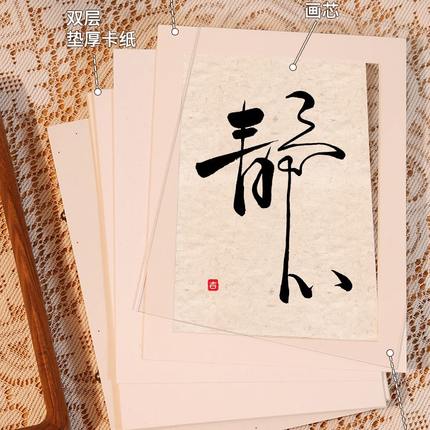 画芯
双层
垫厚卡纸
静心
吉